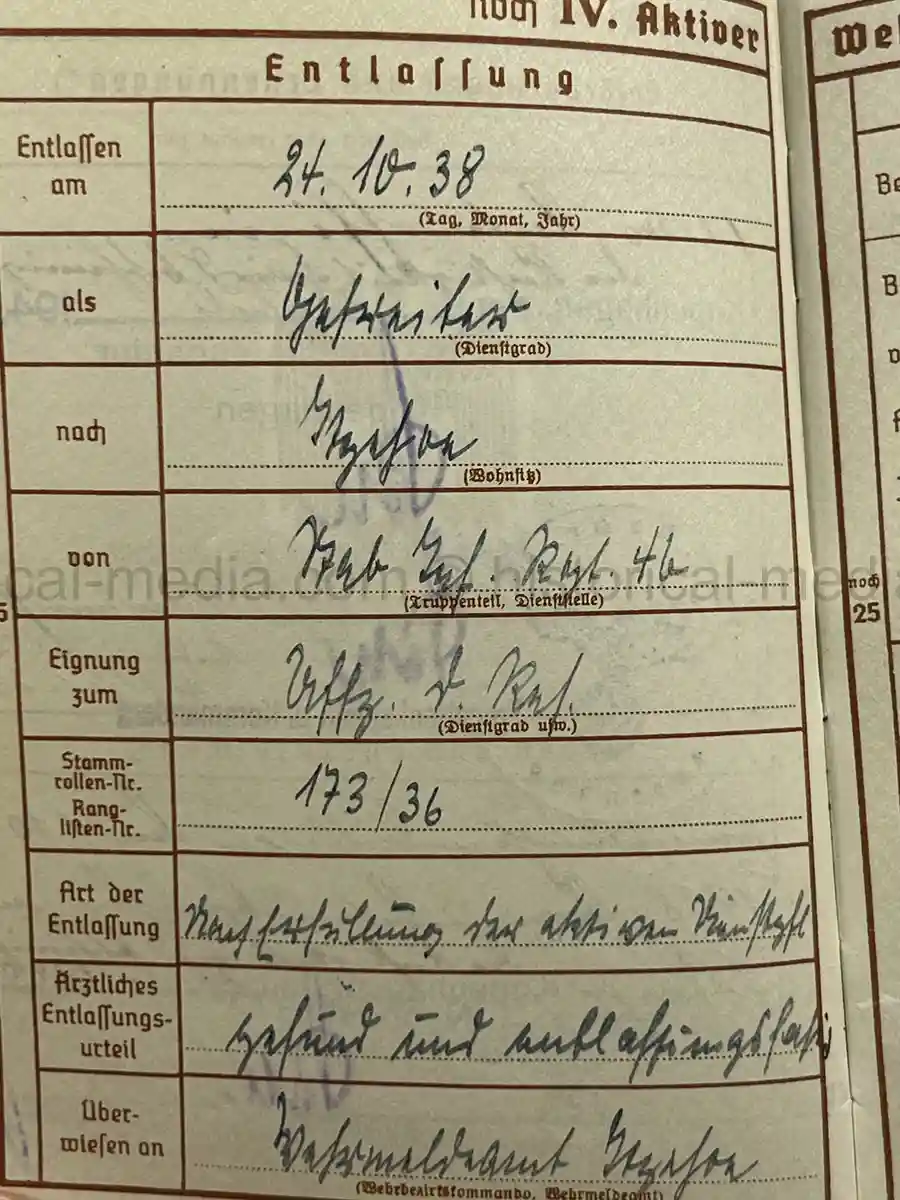 noch IV. Aktiver
Entlassung
Entlassen am
24. 10. 38
(Tag, Monat, Jahr)
als
Gefreiter
(Dienstgrad)
nach
Itzehoe
(Wohnsitz)
von
Stab Inf. Regt. 46
(Truppenteil, Dienststelle)
Eignung zum
Uffz. d. Res.
(Dienstgrad usw.)
Stamm-
rollen-Nr.
Rang-
listen-Nr.
173/36
Art der
Entlassung
Nach Erfüllung der aktiven Dienstpfl
Ärztliches
Entlassungs-
urteil
gesund und entlassungsfähi
Über-
wiesen an
Wehrmeldeamt Itzehoe
(Wehrbezirkskommando, Wehrmeldeamt)
We
Be
B
noch
25